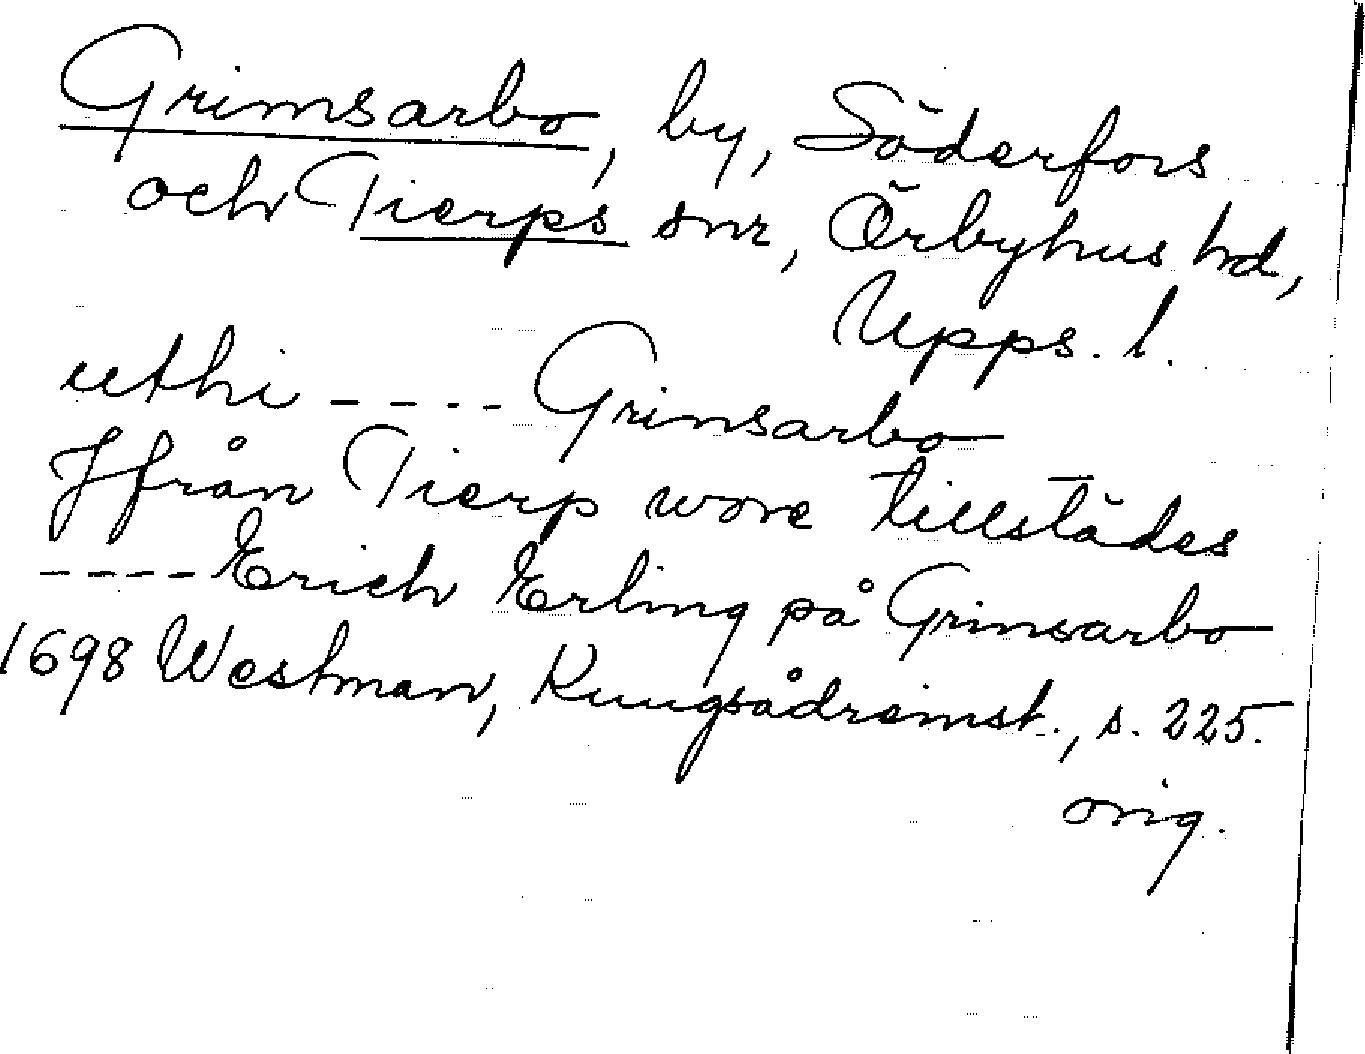 Grimsarbo, by, Söderfors
och Tierps snr, Örbyhus hd,
Upps. l.
uthi ---- Grimsarbo
Jfrån Tierp wore tillstädes
---- Erich Erling på Grimsarbo
1698 Westman, Kungsådremst., s. 225.
orig.